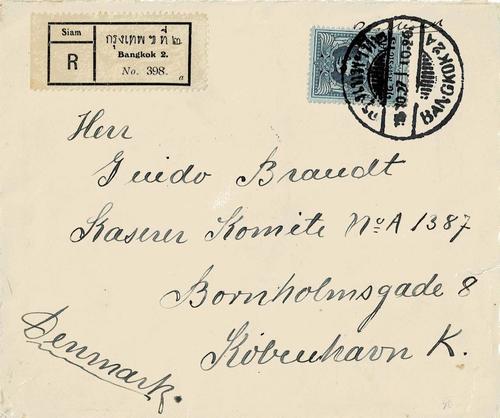 Siam
R
กรุงเทพฯ ที่ ๒
Bangkok 2.
No. 398.
a
BANGKOK 2A
Herr
Guido Brandt
Kaserer Komite No A 1387
Bornholmsgade 8
København K.
Denmark.